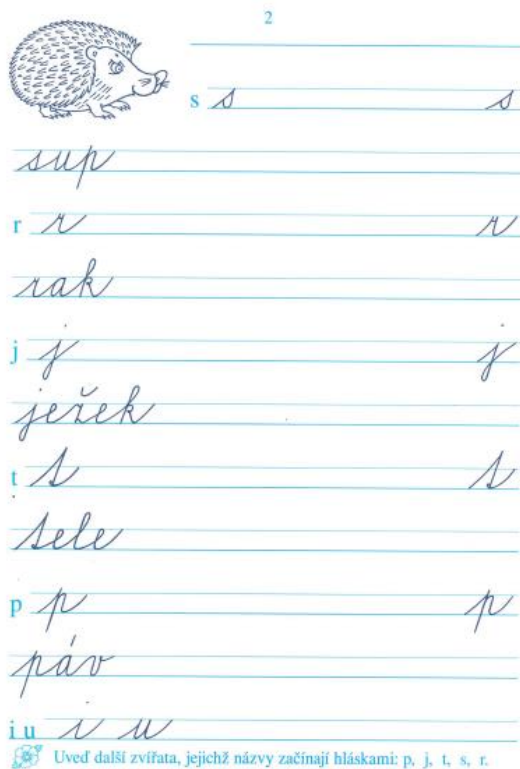 2
s s s
sup
r r r
rak
j j j
ježek
t t t
tele
p p p
páv
i u i u
Uveď další zvířata, jejichž názvy začínají hláskami: p, j, t, s, r.